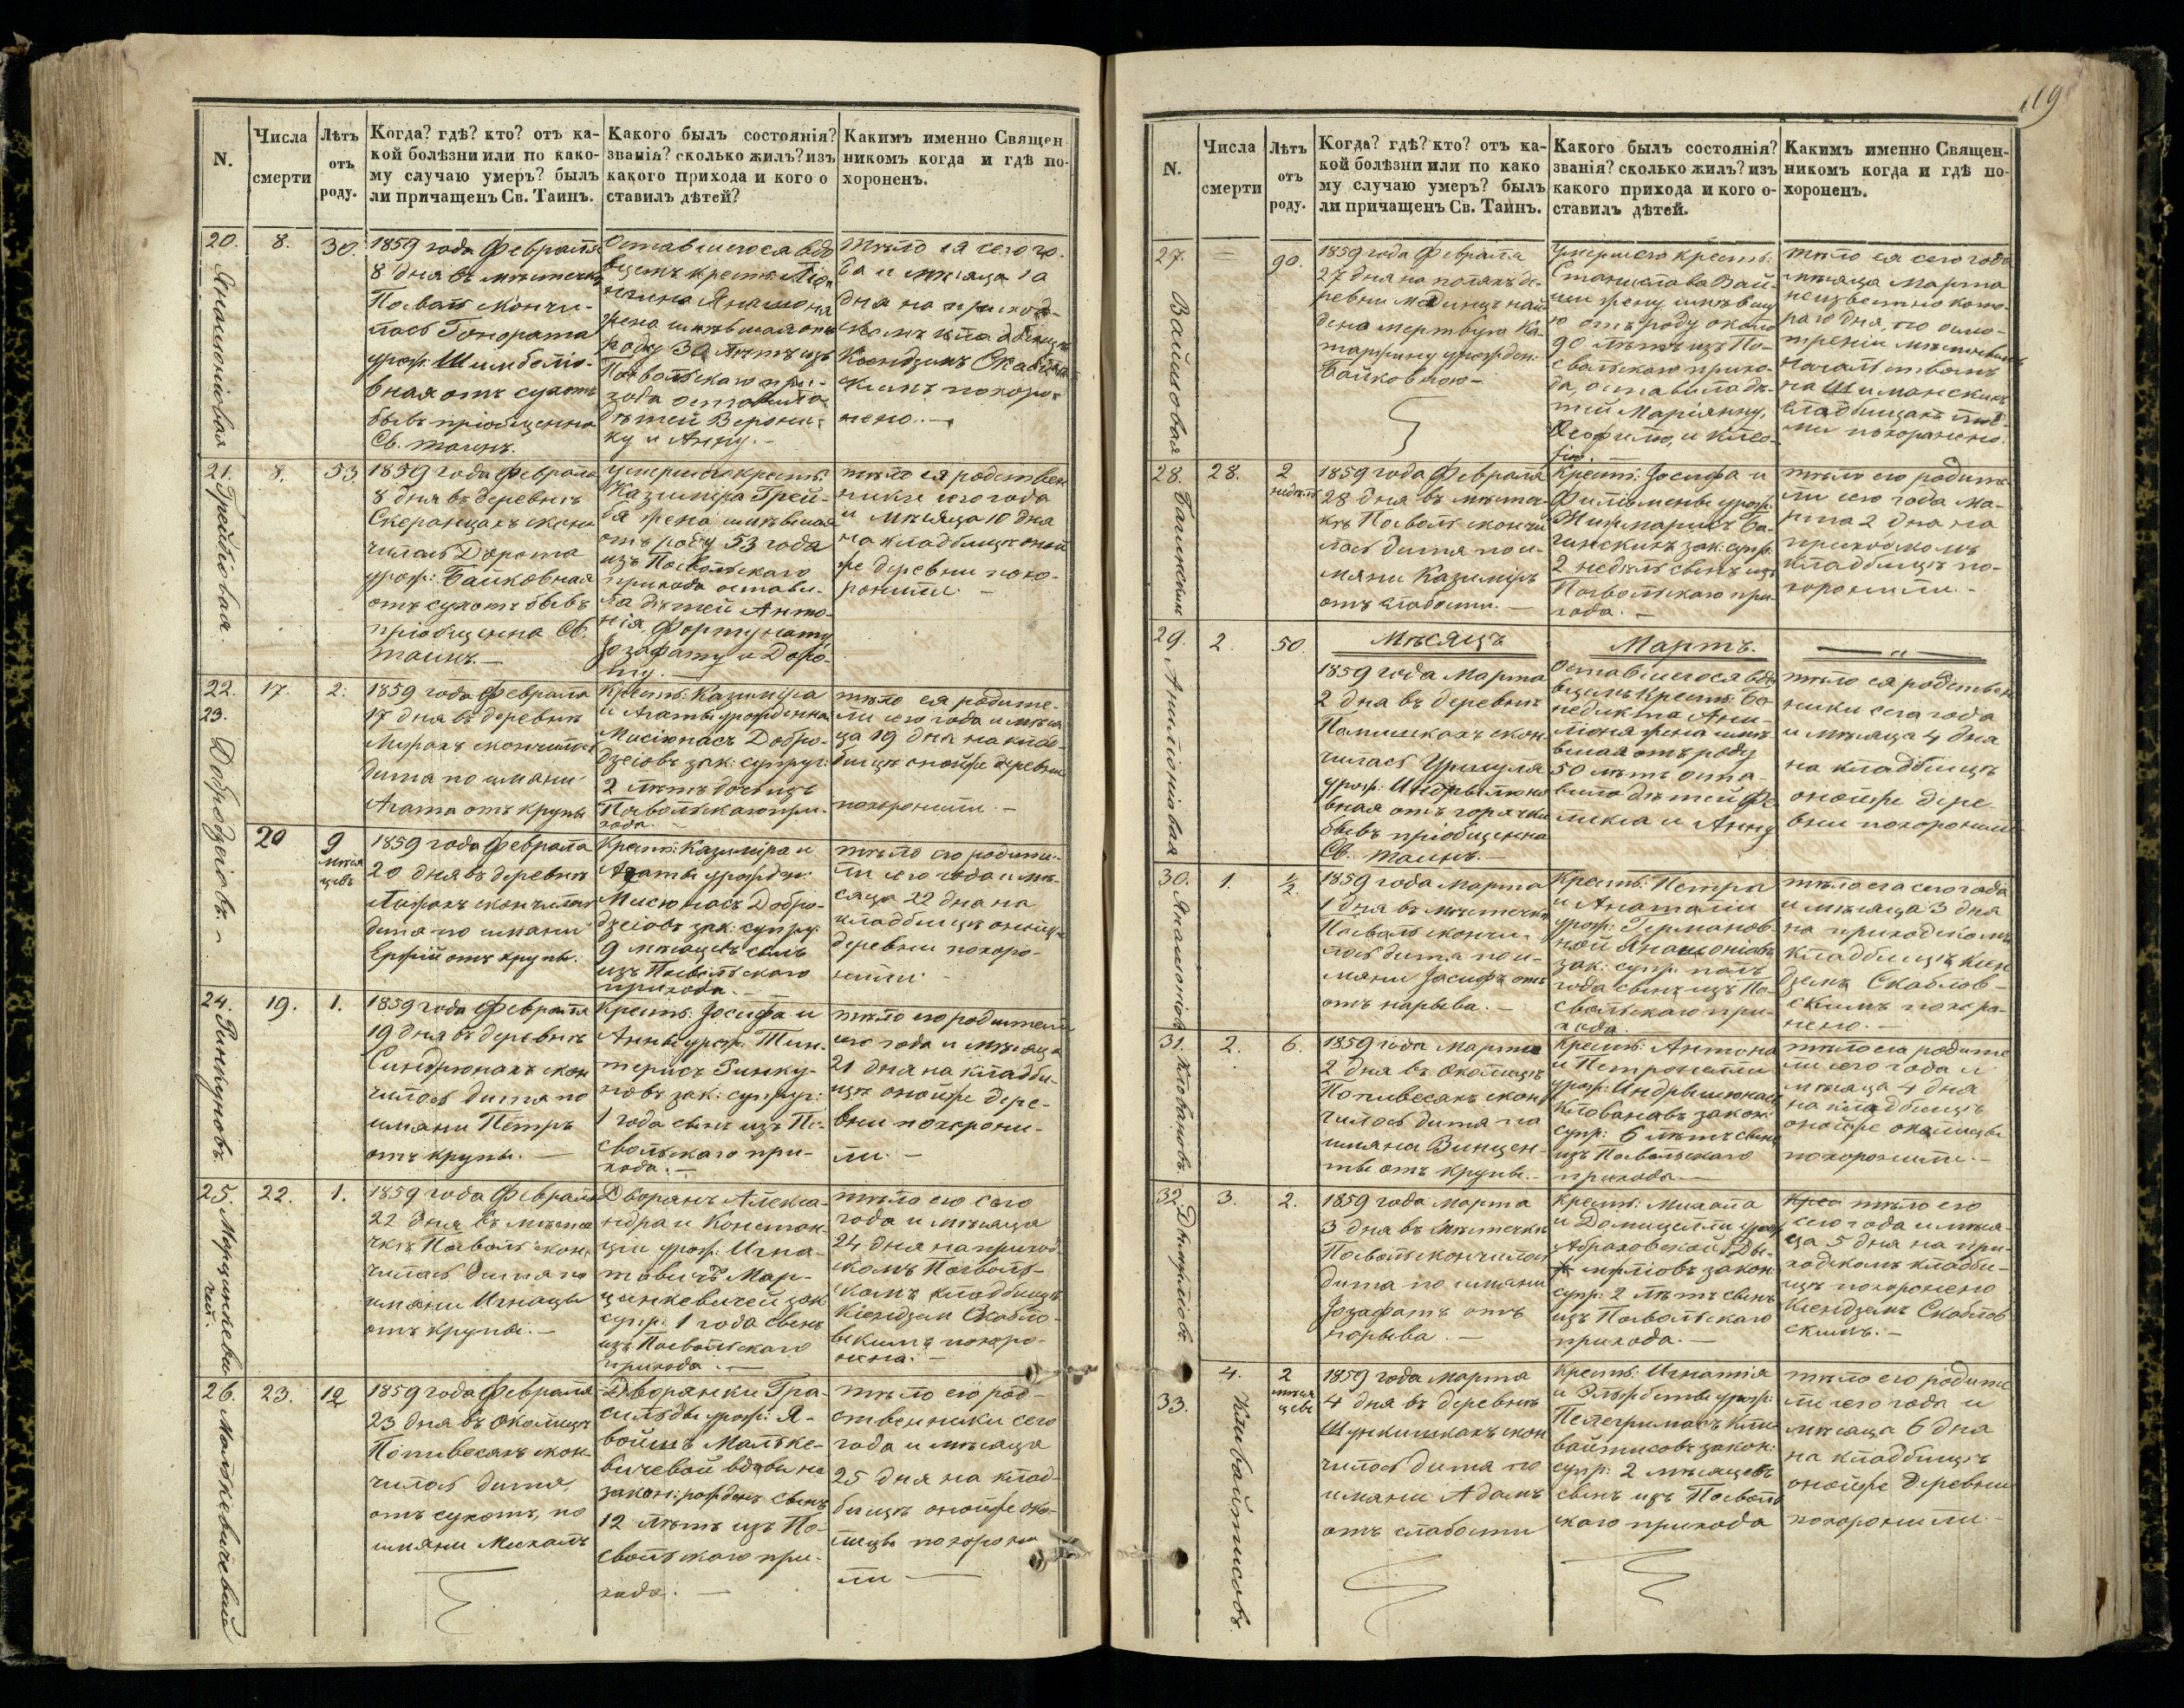 119
N.
Числа
смерти
Лѣтъ
отъ
роду.
Когда? гдѣ? кто? отъ ка-
кой болѣзни или по како-
му случаю умеръ? былъ
ли причащенъ Св. Таинъ.
Какого былъ состоянія?
званія? сколько жилъ? изъ
какого прихода и кого о
ставилъ дѣтей?
Какимъ именно Священ
никомъ когда и гдѣ по-
хороненъ.
20.
8.
30.
1859 года Февраля
8 дня въ мѣстечкѣ
Посволь скончи-
лась Гонората
урож:
вная отъ сухотъ
бывъ пріобщенна
Св. таинъ.
Оставшегося вдо
вцемъ крест:
жена имѣвшая отъ
роду 30 лѣтъ изъ
Посвольскаго при-
хода оставила
дѣтей Верони-
ку и Анну.
тѣло ея сего го
да и мѣсяца 10
дня на приход-
скомъ кладбищѣ
Ксендзомъ
похоро-
нено.
21.
Грейбіовая
8.
53.
1859 года Февраля
8 дня въ деревнѣ
скон-
чилась Дорота
урож: Байковная
отъ сухотъ бывъ
пріобщенна Св.
таинъ.
умершего крест:
Казиміра Грей-
бя жена имѣвшая
отъ роду 53 года
изъ Посвольскаго
прихода остави-
ла дѣтей Анто-
нія, Фортунату
Іозафату и Доро-
ту.
тѣло ея родствен
ники сего года
и мѣсяца 10 дня
на кладбищѣ оной
же деревни похо-
ронили.
22.
23.
Добродзеіовъ
17.
2.
1859 года Февраля
17 дня въ деревнѣ
скончилось
дитя по имяни
Агата отъ крупы
крест: Казиміра
и Агаты урожденна
Мисіюнасъ Добро-
дзеіовъ зак: супруг:
2 лѣтъ дочь изъ
Посвольскаго при-
хода.
тѣло ея родите-
ли сего года и мѣся
ца 19 дня на клад-
бищѣ онойже деревни
похоронили.
20
9
мѣся
цевъ
1859 года Февраля
20 дня въ деревнѣ
скончилось
дитя по имяни
Ержій отъ крупы.
крест: Казиміра и
Агаты урожден:
Мисюнасъ Добро-
дзеіовъ зак: супру:
9 мѣсяцевъ сынъ
изъ Посвольскаго
прихода.
тѣло его родите-
ли сего года и мѣ-
сяца 22 дня на
кладбищѣ онойже
деревни похоро-
нили.
24.
Ринкуновъ
19.
1.
1859 года Февраля
19 дня въ деревнѣ
Синдрюнахъ скон
чилось дитя по
имяни Пётръ
отъ крупы.
крест: Іосифа и
Анны урож: Тин-
терисъ Ринку-
новъ зак: супруг:
1 года сынъ изъ По-
свольскаго при-
хода.
тѣло его родители
сего года и мѣсяца
21 дня на кладби-
щѣ онойже дере-
вни похорони-
ли.
25.
Марцинкеви-
чей.
22.
1.
1859 года Февраля
22 дня въ мѣсте
чкѣ Посволь скон-
чилось дитя по
имяни Игнацы
отъ крупы.
Дворянъ Алекса-
ндра и Констан-
ціи урож: Игна-
товичъ Мар-
цинкевичей зак:
супр: 1 года сынъ
изъ Посвольскаго
прихода.
тѣло его сего
года и мѣсяца
24 дня на приход
скомъ Посволь-
скомъ кладбищѣ
Ксіендзом Скабло-
вскимъ похоро-
нено.
26.
Малькевичевый
23.
12
1859 года Февраля
23 дня въ Околицѣ
Поливесахъ скон-
чилось дитя
отъ сухотъ, по
имяни Михалъ
Дворянки Гра-
сильды урож: Я-
войшъ Мальке-
вичевой вдовы не
закон: рожден: сынъ
12 лѣтъ изъ По-
свольскаго при-
хода.
тѣло его род-
ственники сего
года и мѣсяца
25 дня на клад-
бищѣ онойже око-
лицы похорони
ли
N.
Числа
смерти
Лѣтъ
отъ
роду.
Когда? гдѣ? кто? отъ ка-
кой болѣзни или по како
му случаю умеръ? былъ
ли причащенъ Св. Таинъ.
Какого былъ состоянія?
званія? сколько жилъ? изъ
какого прихода и кого о-
ставилъ дѣтей.
Какимъ именно Священ-
никомъ когда и гдѣ по-
хороненъ.
27.
90.
1859 года Февраля
27 дня на поляхъ де-
ревни най-
дена мертвую Ка-
таржину урожден:
Байковною
Умершего крест:
Станислава Вай-
жену имѣвшу
ю отъ роду около
90 лѣтъ изъ По-
свольскаго прихо-
да, оставила дѣ-
тей Маріянну,
Теофилю, и
тѣло ея сего года
мѣсяца Марта
неизвестно кото-
раго дня, по осмо-
треніи
Начальствомъ
на Шиманскихъ
кладбищахъ
похоронено.
28.
28.
2
недѣль
1859 года Февраля
28 дня въ мѣстеч-
кѣ Посволь скончи
лось дитя по и-
мяни Казиміръ
отъ слабости.
Крест: Іосифа и
Филомены урож:
зак: супр:
2 недѣль сынъ изъ
Посвольскаго при-
хода.
тѣло его родите
ли сего года Ма-
рта 2 дня на
приходскомъ
кладбищѣ по-
хоронили.
Мѣсяцъ
Мартъ.
29.
2.
50.
1859 года Марта
2 дня въ деревнѣ
скон-
чилась Уршуля
урож:
вная отъ горячки
бывъ пріобщенна
Св. таинъ.
Оставшегося вдо
вцемъ крест: Бе
недикта
жена имѣ-
вшая отъ роду
50 лѣтъ оста-
вила дѣтей Фе-
ликса и Анну
тѣло ея родствен
ники сего года
и мѣсяца 4 дня
на кладбищѣ
онойже дере-
вни похоронили
30.
1.
½.
1859 года Марта
1 дня въ мѣстечкѣ
Посволь скончи-
лось дитя по и-
мяни Іосифъ отъ
отъ нарыва.
Крест: Петра
и Анаталіи
урож: Германов-
ной
зак: супр: полъ
года сынъ изъ По-
свольскаго при-
хода.
тѣло его сего года
и мѣсяца 3 дня
на приходскомъ
кладбищѣ Ксен
дземъ Скаблов-
скимъ похоро-
нено.
31.
Кловановъ
2.
6.
1859 года Марта
2 дня въ Околицѣ
Поливесахъ скон
чилось дитя по
имяни Винцен-
ты отъ крупы.
крест: Антона
и Петронели
урож:
Клованавъ закон:
супр: 6 лѣтъ сынъ
изъ Посвольскаго
прихода
тѣло его родите
ли сего года и
мѣсяца 4 дня
на кладбищѣ
онойже околицы
похоронили.
32.
3.
2.
1859 года Марта
3 дня въ мѣстечкѣ
Посволь скончилось
дитя по имяни
Іозафатъ отъ
нарыва.
крест: Михала
и Домицелли урож:
закон:
супр: 2 лѣтъ сынъ
изъ Посвольскаго
прихода.
Крес тѣло его
сего года и мѣся-
ца 5 дня на при-
ходскомъ кладби-
щѣ похоронено
Ксіендземъ Скаблов
скимъ.
33.
Кливайтисовъ.
4.
2
мѣся
цевъ
1859 года Марта
4 дня въ деревнѣ
скон
чилось дитя по
имяни Адамъ
отъ слабости
крест: Игнатія
и Эльжбеты урож:
Пелегримасъ Кли
вайтисовъ закон:
супр: 2 мѣсяцевъ
сынъ изъ Посволь
скаго прихода
тѣло его родите
ли сего года и
мѣсяца 6 дня
на кладбищѣ
онойже деревни
похоронили.